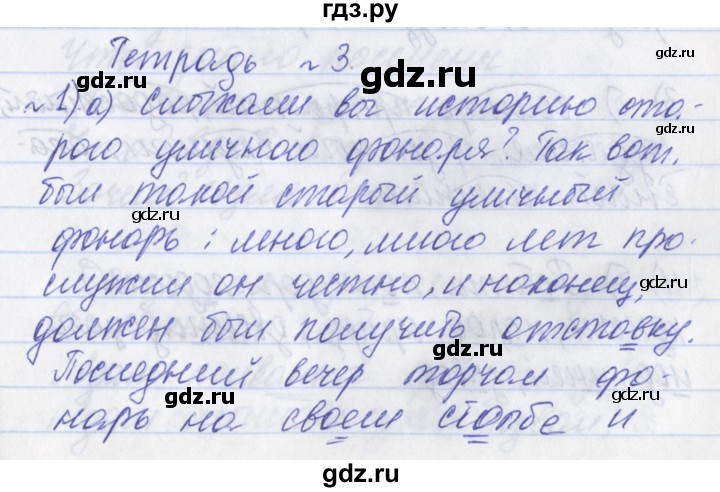 гдз.ру
Тетрадь №3.
№1) а) Слыхали вы историю ста-
gdz.ru
рого уличного фонаря? Так вот,
gdz.ru
gdz.ru
был такой старый уличный
gdz.ru
gdz.ru
фонарь: много, много лет про-
служил он честно, и наконец,
gdz.ru
должен был получить отставку.
gdz.ru
Последний вечер торчал фо-
gdz.ru
gdz.ru
нарь на своем столбе и
gdz.ru